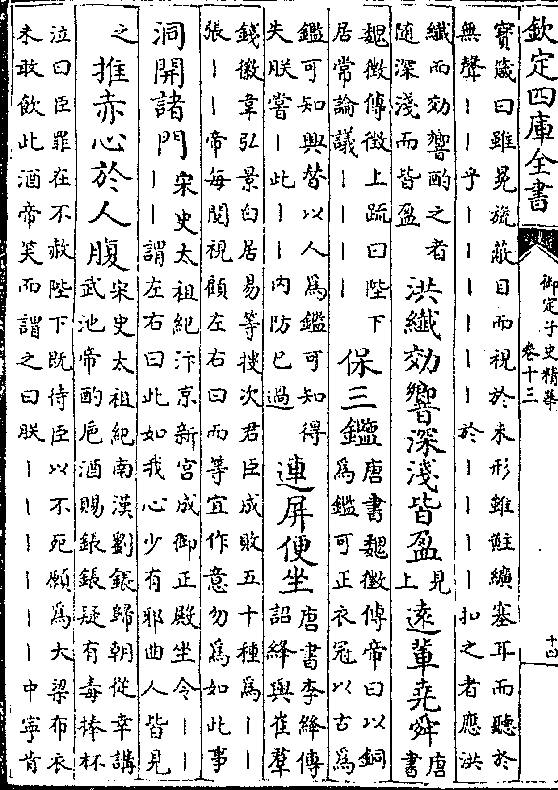 欽定四庫全書
御定子史精華
卷十三
十四
寶箴曰雖冕旒蔽目而視於未形雖黈纊塞耳而聽於
無聲｜｜乎｜｜｜｜｜｜於｜｜｜｜扣之者應洪
纖而効響酌之者
随深淺而皆盈
洪纖効響深淺皆盈
見
上
遠軰堯舜
唐
書
魏徵傳徵上疏曰陛下
居常論議｜｜｜｜
保三鑑
唐書魏徵傳帝曰以銅
為鑑可正衣冠以古為
鑑可知興替以人為鑑可知得
失朕嘗｜此｜｜内防已過
連屏便坐
唐書李絳傳
詔絳與崔羣
錢徽韋弘景白居易等搜次君臣成敗五十種為｜｜
張｜｜帝每閲視顧左右曰而等宜作意勿為如此事
洞開諸門
宋史太祖紀汴京新宮成御正殿坐令｜｜
｜｜謂左右曰此如我心少有邪曲人皆見
之
推赤心於人腹
宋史太祖紀南漢劉鋹歸朝從幸講
武池帝酌巵酒賜鋹鋹疑有毒捧杯
泣曰臣罪在不赦陛下既待臣以不死願為大梁布衣
未敢飲此酒帝笑而謂之曰朕｜｜｜｜｜｜中寧肯